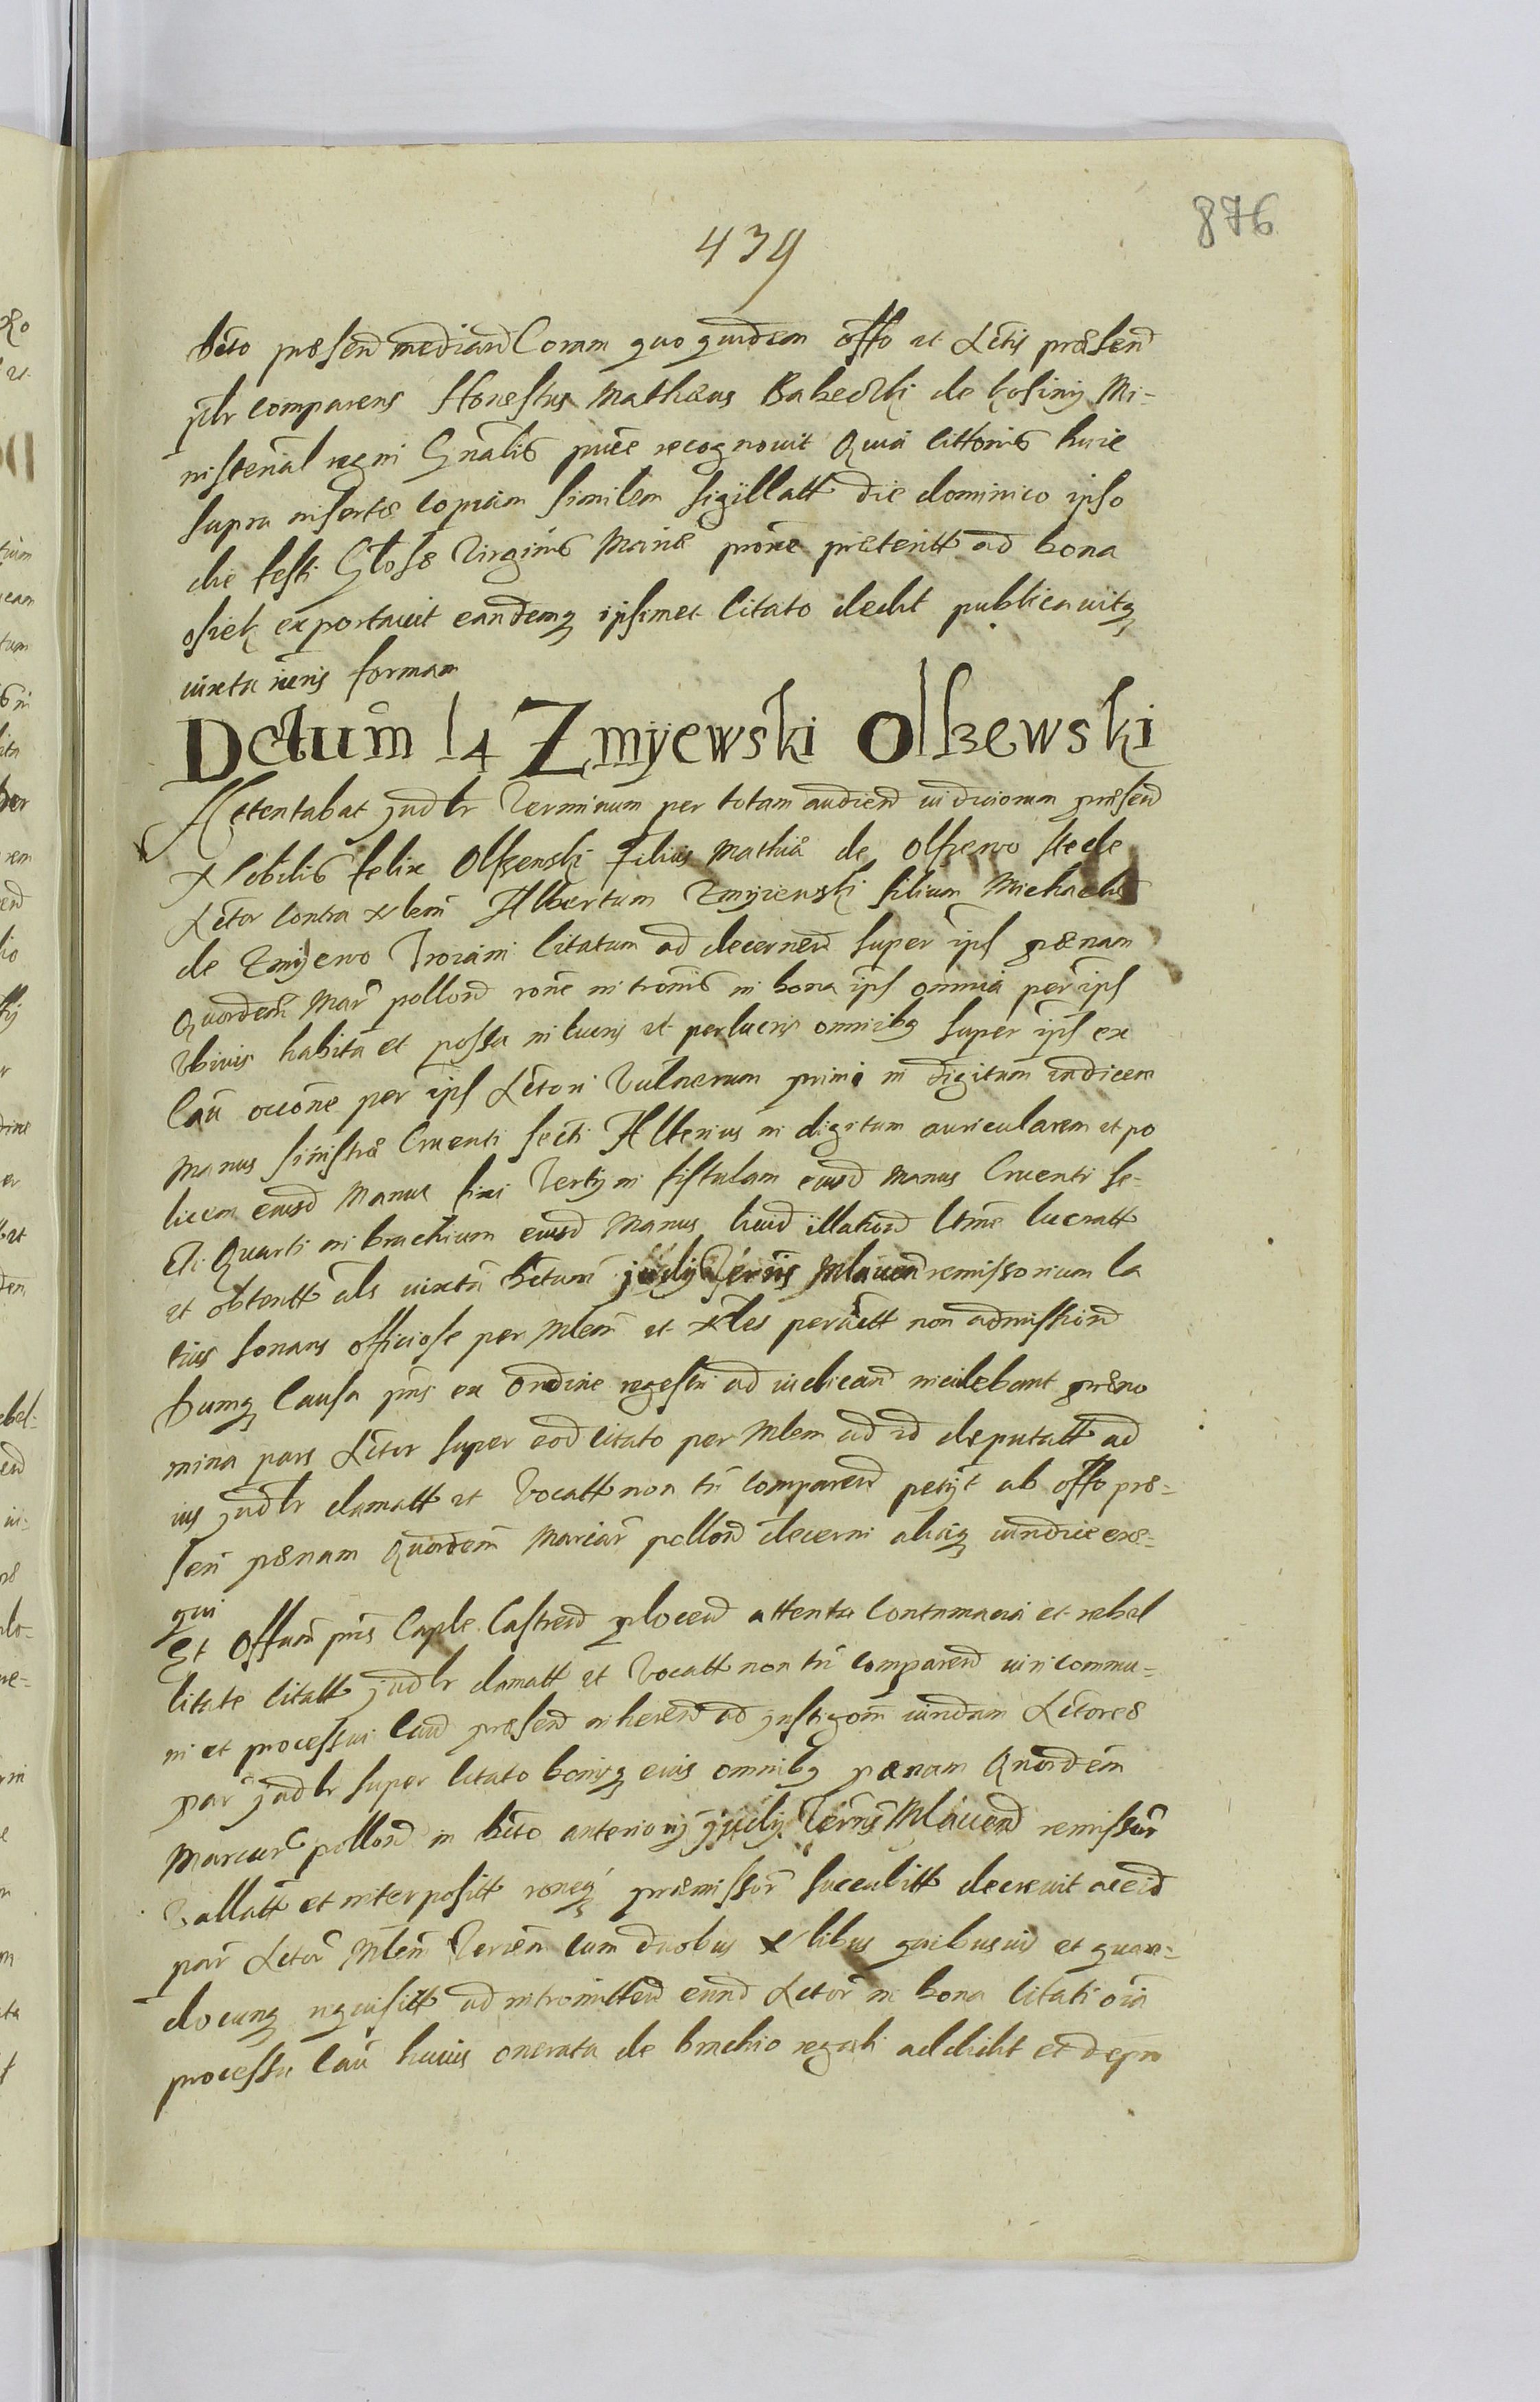 876
439
præsend mediand Coram quo quidem offo et Actis præsend
comparens Honestus Mathæus Babeczki de Kosiny Mi-
nisterial regni Gnalis recognouit Quia littoris huic
supra insertæ copiam similem sigillatt die dominico ipso
die festi Glosæ Virginis Mariæ proxe præteritt ad bona
osiek exportauit eandemq ipsimet Citato dedit publicauitq
iuxta iuris formam
Dctum 14 Zmyewski Olszewski
Attentabat judlr Terminum per totam audiend iudiciorum præsend
Nobilis felix Olszewski filius Mathiæ de Olszewo stede
Actor contra Nlem Albertum Zmyiewski filium Michaelis
de Zmijewo Troiani Citatum ad decernend super ips pœnam
Quordecim Mar pollond rone intronis in bona ips omnia per ips
Vbiuis habita et possa in lucris et perlucris omnibq super ips ex
Cau occone per ips Actori Vulnerum primi in digitum indicem
Manus sinistræ Cruenti secti Alterius in digitum auricularem et po
licem eiusd Manus Tertij in fistulam eiusd Manus Cruenti se-
cti Quarti in brachium eiusd Manus liuid illatord ltme lucratt
et obtentt als iuxta judij Terris Mlauen remissorium la
tius sonans officiose per Mlem et Nles
non admissiond
Dumq Causa pns ex ordine regestri ad iudicand incidebant præno
mina pars Actor super eod citato per Mlem ad id deputatt ad
ius judlr clamatt et Vocatt non tn comparend petijt ab offo præ-
sen pœnam Quordecim Marcar pollond decerni aliaq iuridice exe-
qui
Et Offum pns Caple Castrend plocend attenta Contumacia et rebel
litate Citatt judlr clamatt et Vocatt non tn comparend iuri commu-
ni et processui Caud præsend inherend ad instigom iuridam Actoreæ
par judlr super Citato bonisq eius omnibq pœnam Quordecim
Marcar pollond in anteriorj judij Terris Mlauend remissor
Vallatt et interpositt roneq præmissor succubitt decreuit
par Actor Mlem Terrem cum duobus Nlibus quibusuis et quan-
docunq rquisitt ad intromittend eund Actor in bona Citati oia
processu Cau huius onerata de brachio regali addidit et depu